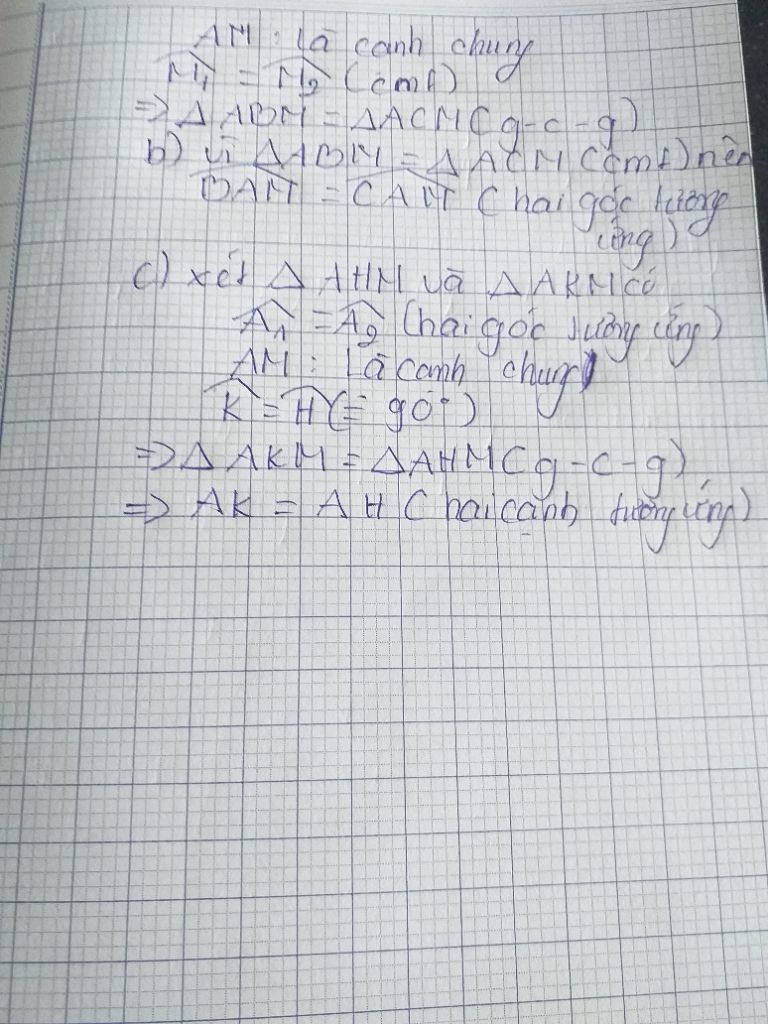 AM : là cạnh chung
M̂₁ = M̂₂ (cmt)
=> Δ ABM = ΔACM (g-c-g)
b) vì ΔABM = Δ ACM (cmt) nên
BAM = CAM (hai góc tương
ứng)
c) xét Δ AHM và Δ AKM có
Â₁ = Â₂ (hai góc tương ứng)
AM : là cạnh chung
K̂ = Ĥ (= 90°)
=> Δ AKM = ΔAHM (g-c-g)
=> AK = AH (hai cạnh tương ứng)